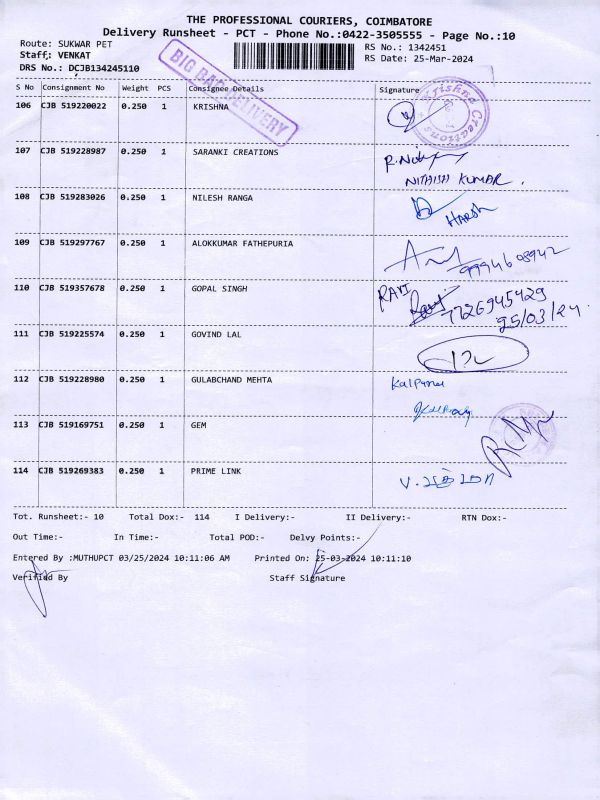 THE PROFESSIONAL COURIERS, COIMBATORE
Delivery Runsheet - PCT - Phone No.:0422-3505555 - Page No.:10
Route: SUKWAR PET
RS No.: 1342451
Staff: VENKAT
RS Date: 25-Mar-2024
DRS No.: DCJB134245110
BIG BAG DELIVERY
S No Consignment No Weight PCS Consignee Details Signature
106 CJB 519220022 0.250 1 KRISHNA
Krishna Creations
107 CJB 519228987 0.250 1 SARANKI CREATIONS
NITHISH KUMAR.
108 CJB 519283026 0.250 1 NILESH RANGA
HARSH
109 CJB 519297767 0.250 1 ALOKKUMAR FATHEPURIA
9994608942
110 CJB 519357678 0.250 1 GOPAL SINGH RAVI
7726945429
25/03/24
111 CJB 519225574 0.250 1 GOVIND LAL
112 CJB 519228980 0.250 1 GULABCHAND MEHTA Kalpana
113 CJB 519169751 0.250 1 GEM
114 CJB 519269383 0.250 1 PRIME LINK
Tot. Runsheet:- 10 Total Dox:- 114 I Delivery:- II Delivery:- RTN Dox:-
Out Time:- In Time:- Total POD:- Delvy Points:-
Entered By :MUTHUPCT 03/25/2024 10:11:06 AM Printed On: 25-03-2024 10:11:10
Verified By Staff Signature